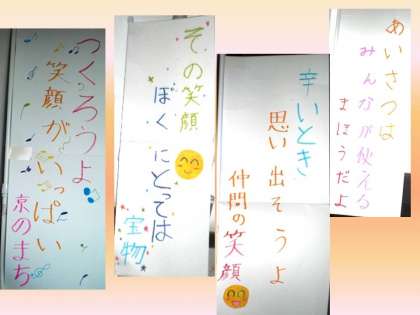 つくろうよ
笑顔がいっぱい
京のまち
その笑顔
ぼくにとっては
宝物
辛いとき
思い出そうよ
仲間の笑顔
あいさつは
みんなが使える
まほうだよ